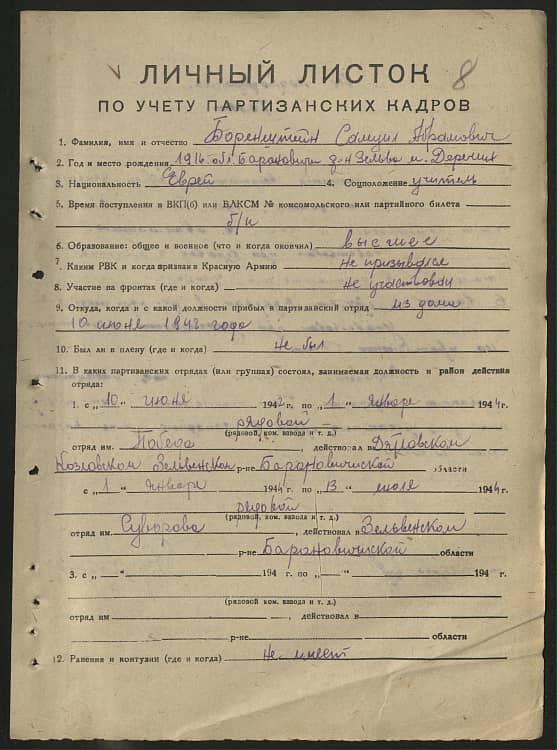 V
ЛИЧНЫЙ ЛИСТОК 8
ПО УЧЕТУ ПАРТИЗАНСКИХ КАДРОВ
1. Фамилия, имя и отчество Боренштейн Самуил Абрамович
2. Год и место рождения 1916 обл. Барановичи р-н Зельва м. Деречин
3. Национальность Еврей 4. Соцположение учитель
5. Время поступления в ВКП(б) или ВЛКСМ № комсомольского или партийного билета
б/п
6. Образование: общее и военное (что и когда окончил) высшее
7. Каким РВК и когда призван в Красную Армию не призывался
8. Участие на фронтах (где и когда) не участвовал
9. Откуда, когда и с какой должности прибыл в партизанский отряд из дома
10 июня 1942 года
10. Был ли в плену (где и когда) не был
11. В каких партизанских отрядах (или группах) состоял, занимаемая должность и район действия
отряда:
1. с „10" июня 1942 г. по „1" января 1944 г.
рядовой
(рядовой, ком. взвода и т. д.)
отряд им. Победа, действовал в Дятловском
Козловском Зельвенском р-не Барановичской области
с „1" января 1944 г. по „13" июля 1944 г.
рядовой
(рядовой, ком. взвода и т. д.)
отряд им. Суворова, действовал в Зельвенском
р-не Барановичской области
3. с „ " 194 г. по „ " 194 г.
(рядовой, ком. взвода и т. д.)
отряд им , действовал в
р-не области
12. Ранения и контузии (где и когда) не имеет